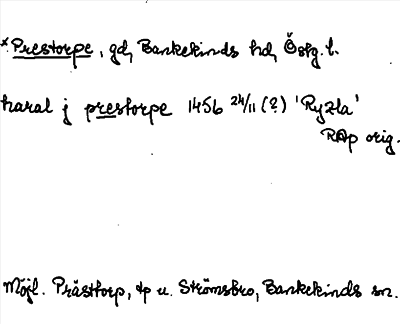 *Prestorpe, gd, Bankekinds hd, Östg. l.
haral j prestorpe 1456 24/11 (?) 'Ryzla'
RAp orig.
Möjl. Prästtorp, tp u. Strömsbro, Bankekinds sn.